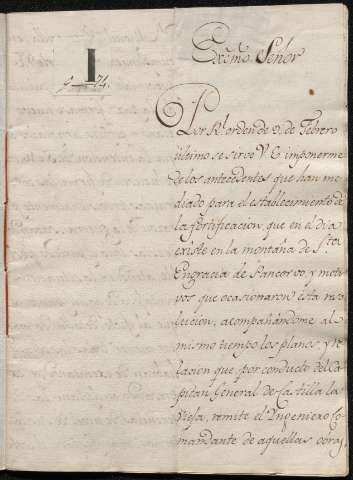 I
9 74.
Exc̃mo Señor
Por Rl. orden de 9, de Febrero
ultimo se sirve V. E. imponerme
de los antecedentes que han me
diado para el establecimiento de
la fortificacion, que en el dia
existe en la montaña de Sta.
Engracia de Pancorvo, y moti
vos que ocasionaron esta reso
lucion, acompañandome al
mismo tiempo los planos, y re
lacion que por conducto del Ca
pitan General de Castilla la
Vieja, remite el Ingeniero Co
mandante de aquellas obras,